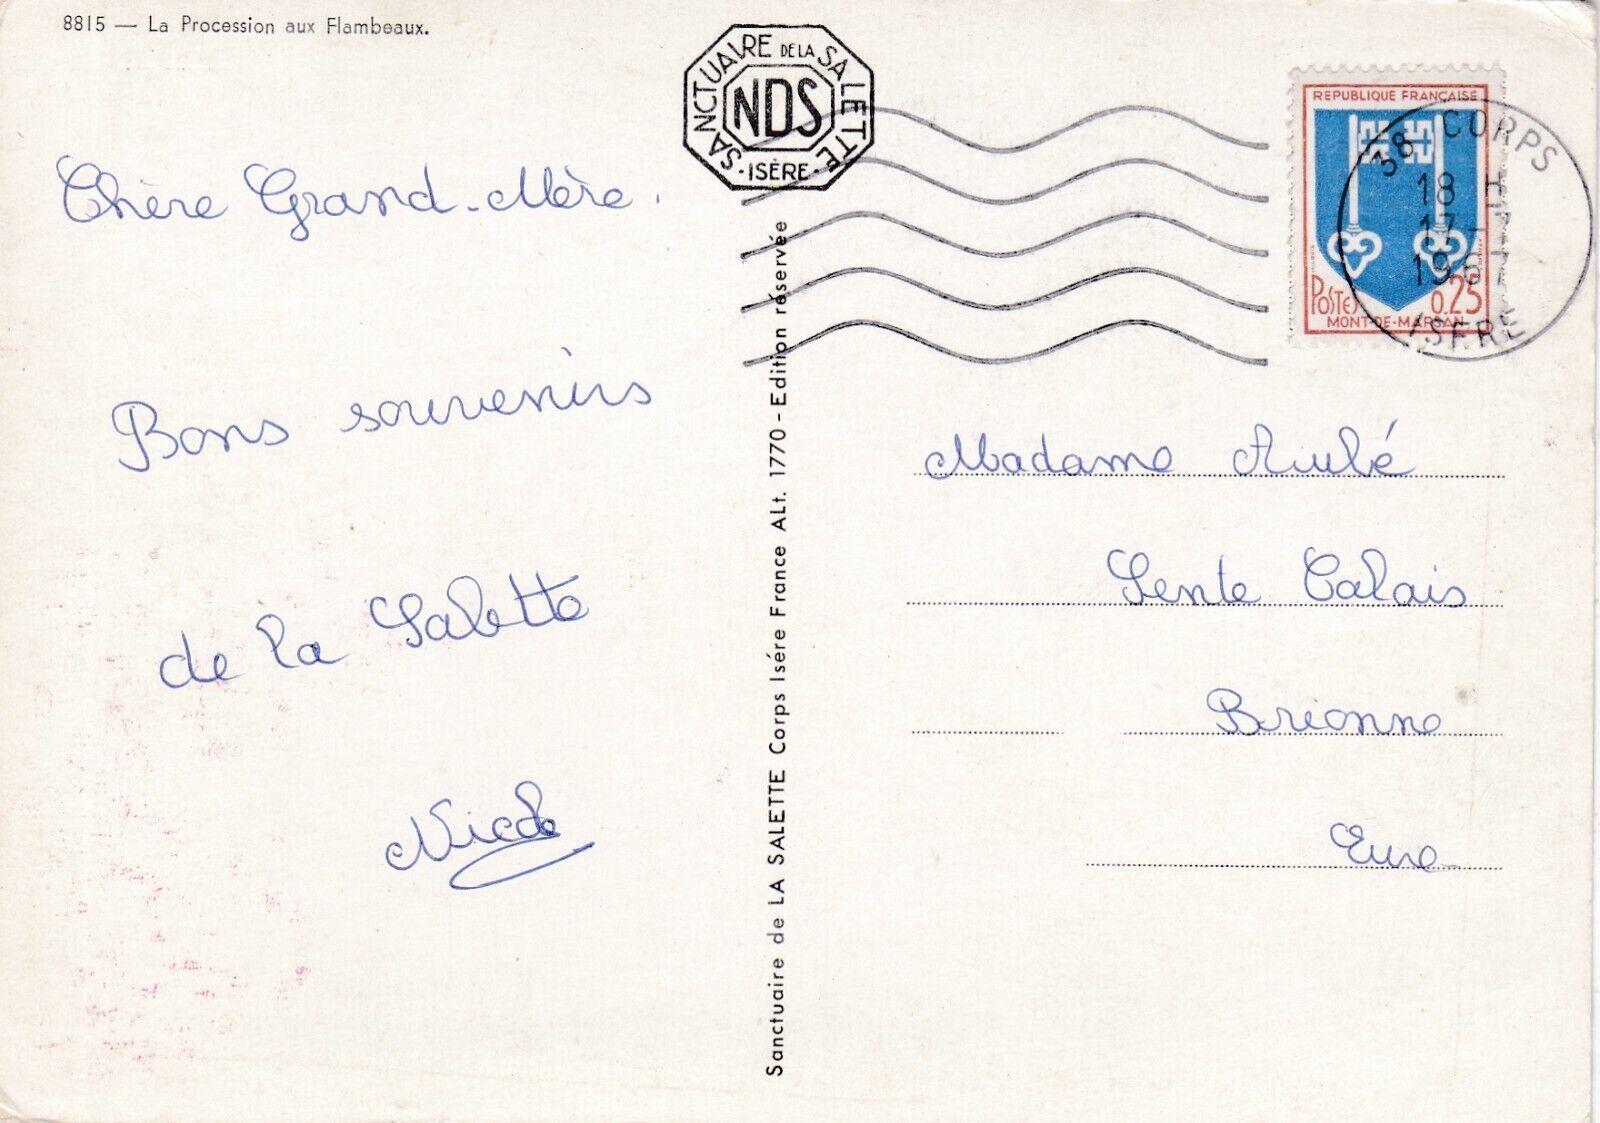 8815 — La Procession aux Flambeaux.
SANCTUAIRE DE LA SALETTE
NDS
- ISÈRE -
REPUBLIQUE FRANÇAISE
POSTES 0.25
MONT-DE-MARSAN
38 CORPS
18 H
17-7
1967
ISERE
Chère Grand-Mère.
Bons souvenirs
de la Salette
Nicole
Sanctuaire de LA SALETTE Corps Isére France ALt. 1770 - Edition réservée
Madame Aubé
Sente Calais
Brionne
Eure